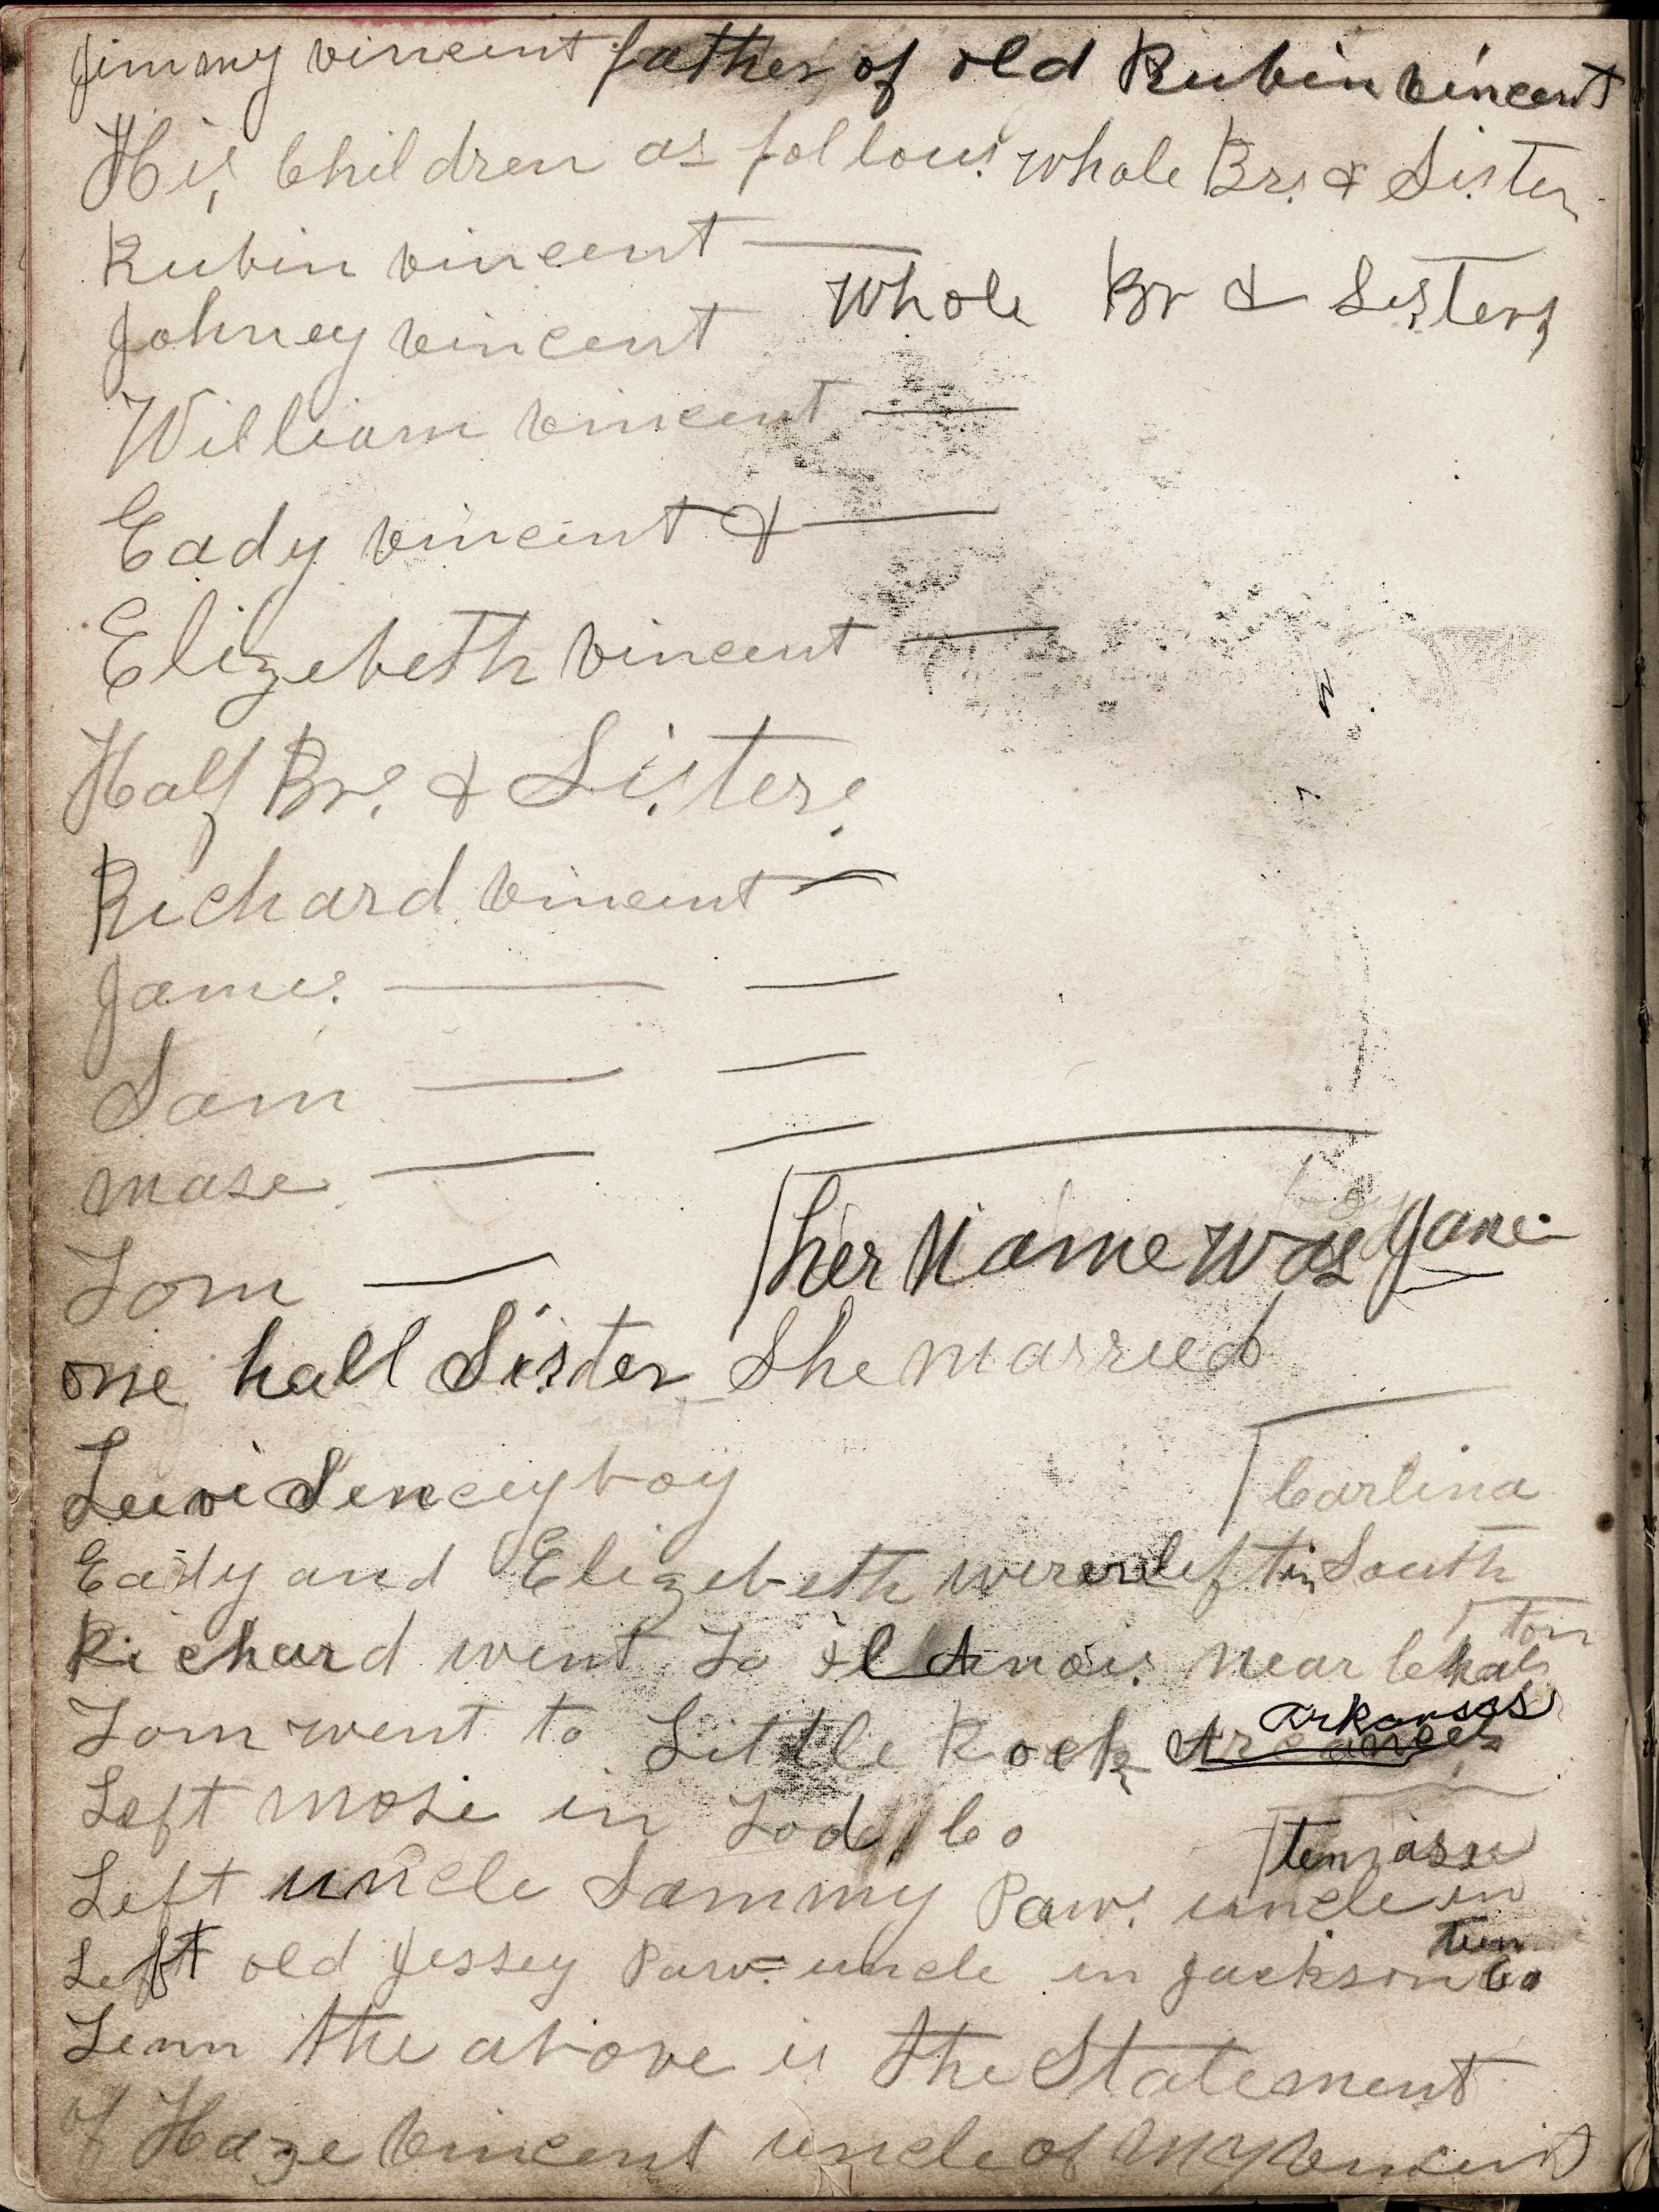 Jimmy vincent father of old Rubin vincent
His Children as follows whole Brs & Sister
Rubin vincent
Whole Br & Sisters
Johney vincent
William vincent
Eady vincent &
Elizebeth vincent
Half Brs & Sisters
Richard vincent
James
Sam
mose
her Name was Jane
Tom
one half Sister She married
Carlina
Eady and Elizebeth were left in South
ton
Richard went To illinois near Chals
arkansas
Tom went to Little Rock
Left mose in Co
tennassee
Left uncle Sammy Paws uncle in
tenn
Left old Jessey Paws uncle in Jackson Co
Tenn the above is the Statement
of Haze vincent uncle of